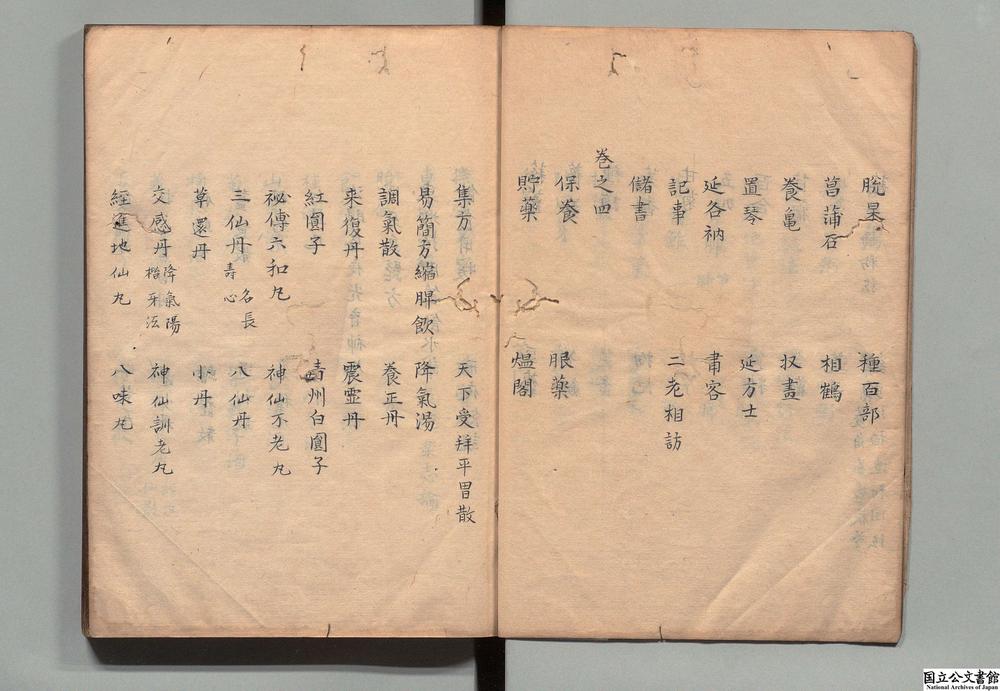 晩杲　種百部
菖蒲石　相鶴
養亀　収畫
置琴　延方士
延各衲　肅客
記事　二老相訪
儲書
巻之四
保養　服薬
貯薬　熅閣
集方　天下受拜平胃散
易簡方縮脾飲　降氣湯
調氣散　養正丹
来復丹　震霊丹
紅圓子　青州白圓子
祕傳六和丸　神仙不老丸
三仙丹 名長壽心　八仙丹
草還丹　小丹
交感丹 降氣陽 揩牙法　神仙訓老丸
經進地仙丸　八味丸
国立公文書館
National Archives of Japan